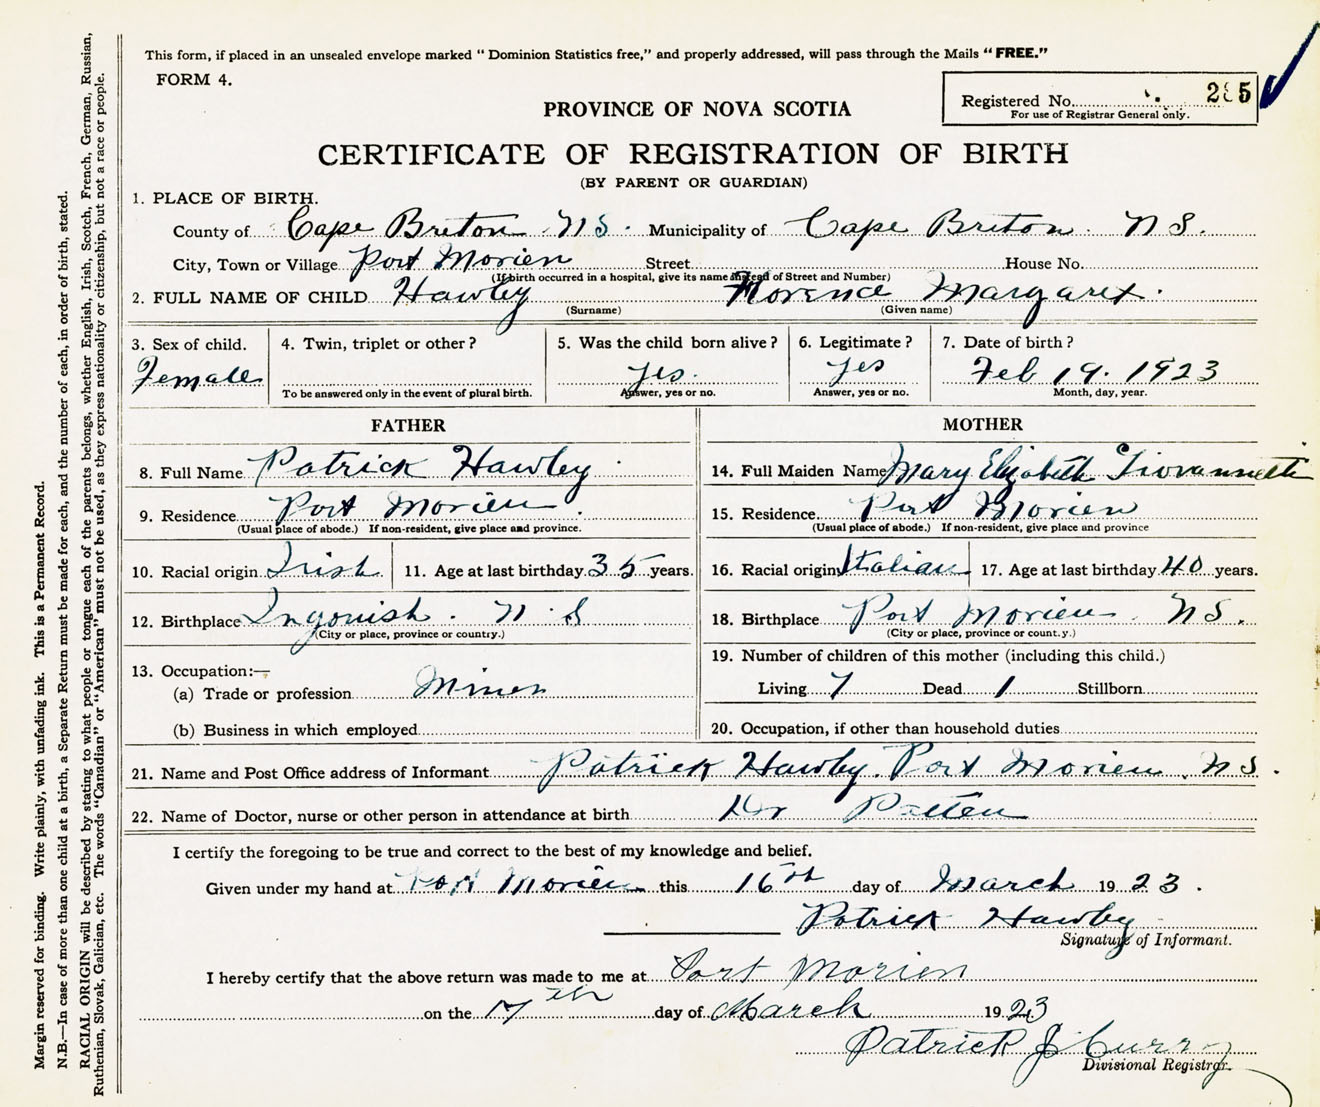 This form, if placed in an unsealed envelope marked “ Dominion Statistics free,” and properly addressed, will pass through the Mails “ FREE.”
FORM 4.
Registered No. 285
For use of Registrar General only.
PROVINCE OF NOVA SCOTIA
CERTIFICATE OF REGISTRATION OF BIRTH
(BY PARENT OR GUARDIAN)
1. PLACE OF BIRTH.
County of Cape Breton NS. Municipality of Cape Breton. NS.
City, Town or Village Port Morien Street House No.
(If birth occurred in a hospital, give its name instead of Street and Number)
2. FULL NAME OF CHILD Hawley Florence Margaret.
(Surname) (Given name)
3. Sex of child. 4. Twin, triplet or other? 5. Was the child born alive? 6. Legitimate? 7. Date of birth?
Female yes. yes Feb 19. 1923
To be answered only in the event of plural birth. Answer, yes or no. Answer, yes or no. Month, day, year.
FATHER MOTHER
8. Full Name Patrick Hawley 14. Full Maiden Name Mary Elizabeth Giovannetti
9. Residence Port Morien. 15. Residence Port Morien
(Usual place of abode.) If non-resident, give place and province. (Usual place of abode.) If non-resident, give place and province
10. Racial origin Irish 11. Age at last birthday 35 years. 16. Racial origin Italian 17. Age at last birthday 40 years.
12. Birthplace Ingonish. N.S 18. Birthplace Port Morien. NS.
(City or place, province or country.) (City or place, province or count.y.)
13. Occupation:— 19. Number of children of this mother (including this child.)
(a) Trade or profession Miner Living 7 Dead 1 Stillborn
(b) Business in which employed 20. Occupation, if other than household duties
21. Name and Post Office address of Informant Patrick Hawley. Port Morien. N S.
22. Name of Doctor, nurse or other person in attendance at birth Dr Patten
I certify the foregoing to be true and correct to the best of my knowledge and belief.
Given under my hand at Port Morien this 16th day of March 1923.
Patrick Hawley
Signature of Informant.
I hereby certify that the above return was made to me at Port Morien
on the 17th day of March 1923
Patrick J Curry
Divisional Registrar.
Margin reserved for binding. Write plainly, with unfading ink. This is a Permanent Record.
N.B.—In case of more than one child at a birth, a Separate Return must be made for each, and the number of each, in order of birth, stated.
RACIAL ORIGIN will be described by stating to what people or tongue each of the parents belongs, whether English, Irish, Scotch, French, German, Russian,
Ruthenian, Slovak, Galician, etc. The words “Canadian” or “American” must not be used, as they express nationality or citizenship, but not a race or people.